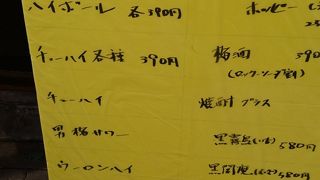 ハイボール 各390円
チューハイ各種 390円
チューハイ
男梅サワー
ウーロンハイ
ホッピー
梅酒
(ロック・ソーダ割)
焼酎 グラス
黒霧島(いも) 580円
580円